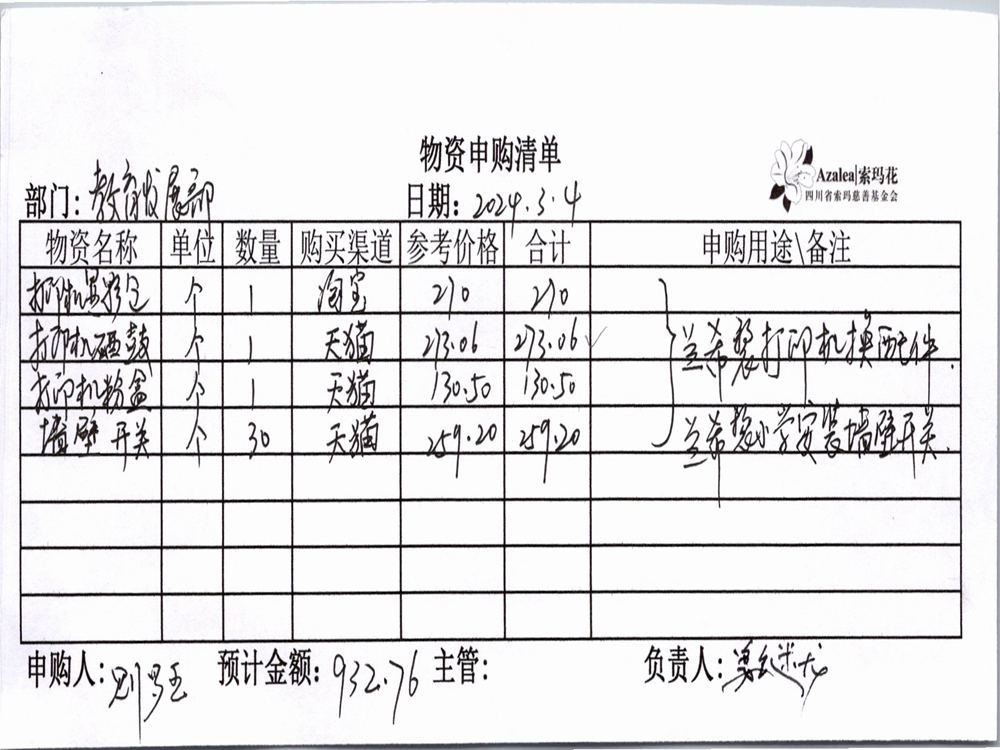 物资申购清单
Azalea|索玛花
四川省索玛慈善基金会
部门：教育发展部 日期：2024.3.4
物资名称 单位 数量 购买渠道 参考价格 合计 申购用途\备注
打印机显影仓 个 1 淘宝 270 270
打印机硒鼓 个 1 天猫 273.06 273.06 打印机换配件.
打印机粉盒 个 1 天猫 130.50 130.50
墙壁开关 个 30 天猫 259.20 259.20 小学安装墙壁开关.
申购人： 预计金额：932.76 主管： 负责人：